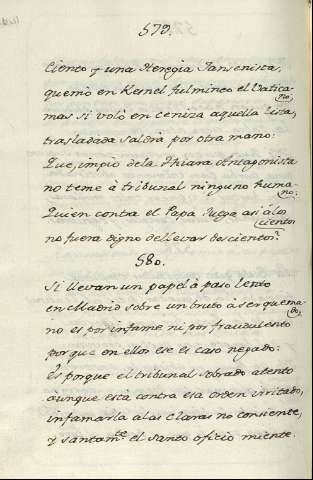 579.
Ciento y una Heregia Jansenista,
quemò en Kesnel fulmineo el Vatica-
no,
mas si volò en ceniza aquella lista,
trasladada saldrà por otra mano:
Que, impio de la thiara Antagonista
no teme à tribunal ninguno huma-
no:
Quien contra el Papa Juega asi à los
cientos
no fuera digno de llevar doscientos?
580.
Si llevan un papel à paso lento
en Madrid sobre un bruto à ser quema-
do,
no es por infame ni por fraudulento
porque en ellos ese es caso negado:
Es porque el tribunal sobrado atento
aunque està contra esa orden irritado,
infamarla a las claras no consiente,
y santam.te el santo oficio miente.